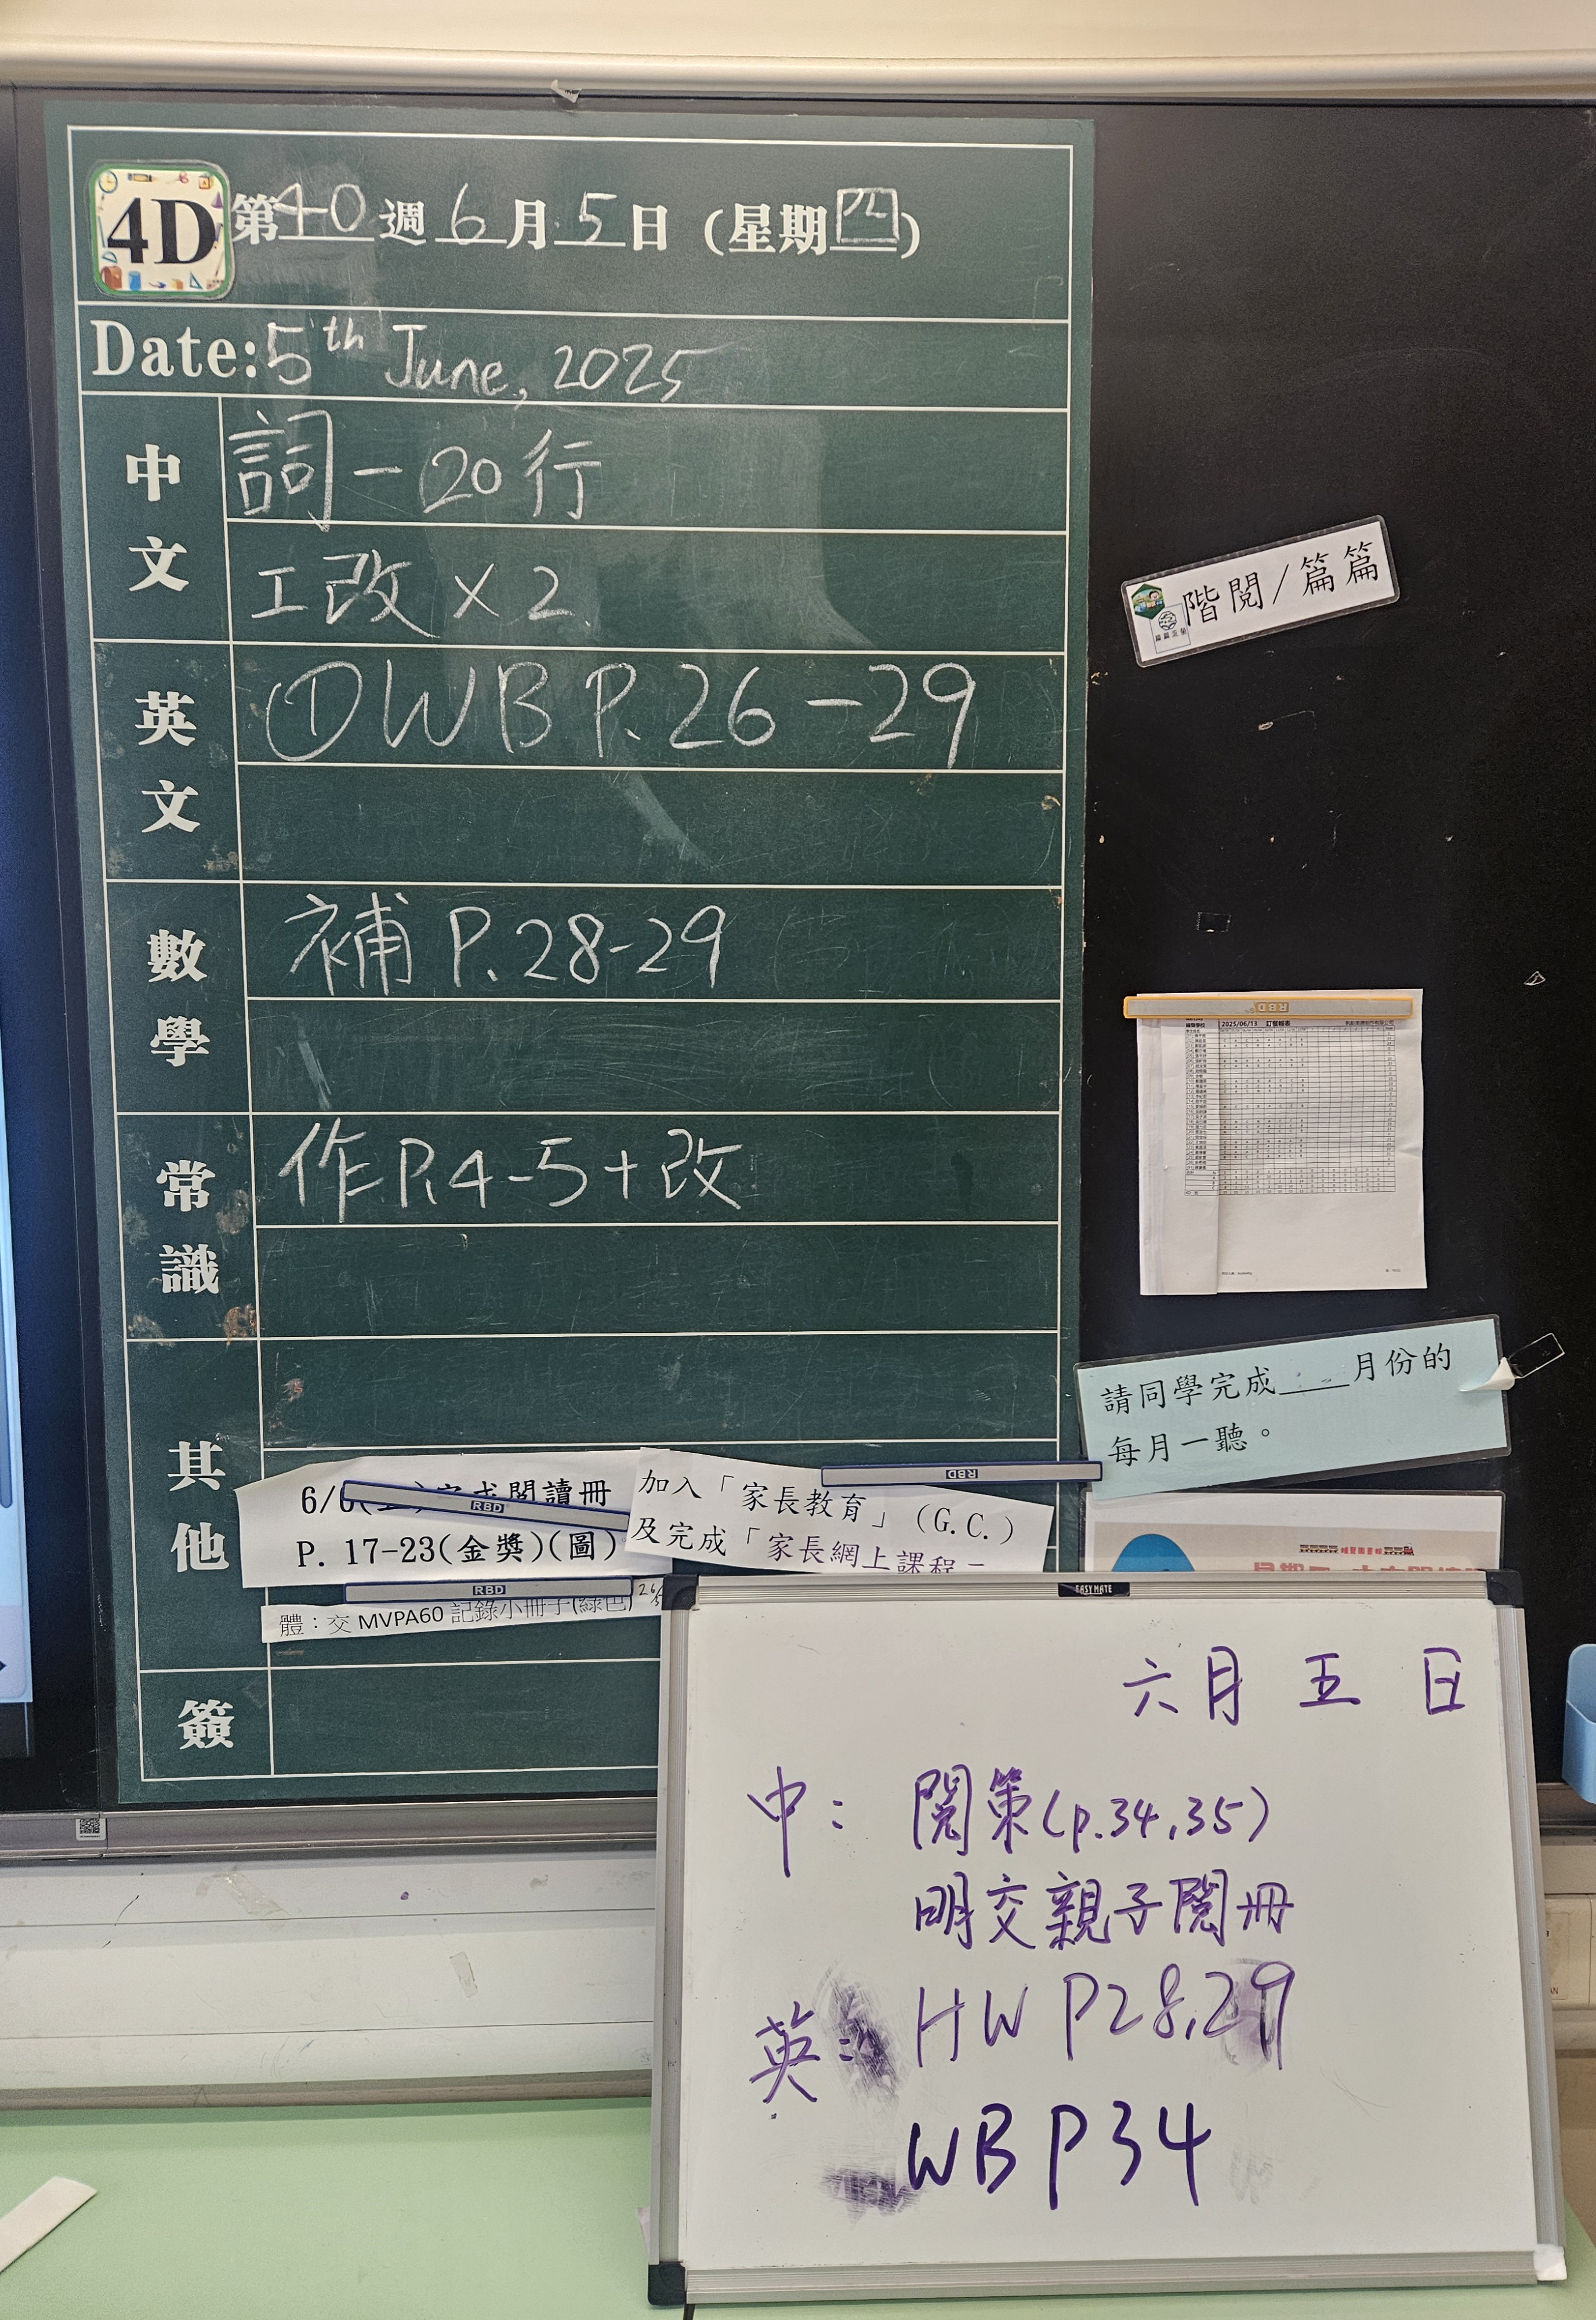 4D 第40週6月5日(星期四)
Date:5th June, 2025
中文
詞一 20行
工改 x 2
英文
① WB P.26-29
數學
補 P.28-29
常識
作P.4-5+改
其他
P. 17-23(金獎)(圖)
加入「家長教育」(G.C.)
及完成「家長網上課程-
體:交 MVPA60 記錄小冊子(綠色)
簽
階閱/篇篇
2025/06/13
請同學完成____月份的
每月一聽。
RBD
RBD
RBD
RBD
EASYMATE
六月五日
中: 閱策(p.34,35)
明交親子閱冊
英: HW P28,29
WB P34